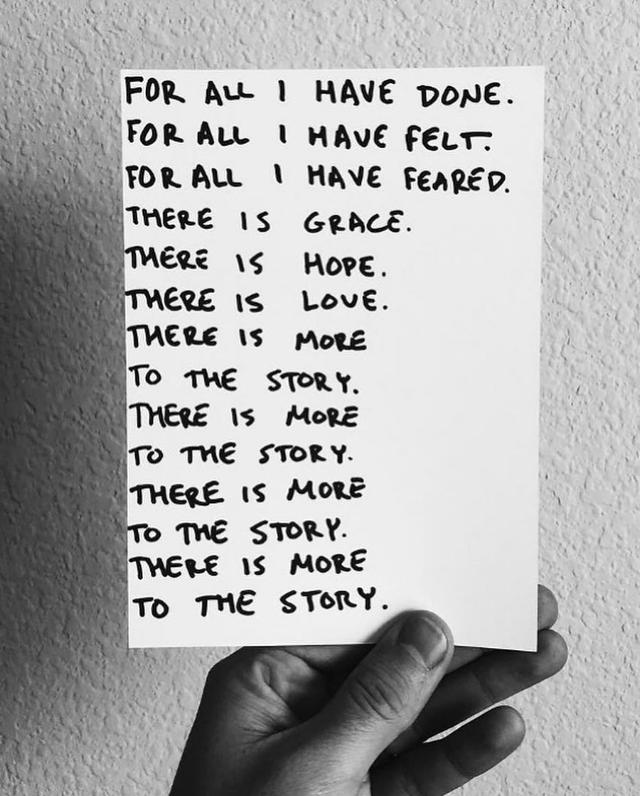 FOR ALL I HAVE DONE.
FOR ALL I HAVE FELT.
FOR ALL I HAVE FEARED.
THERE IS GRACE.
THERE IS HOPE.
THERE IS LOVE.
THERE IS MORE
TO THE STORY.
THERE IS MORE
TO THE STORY.
THERE IS MORE
TO THE STORY.
THERE IS MORE
TO THE STORY.